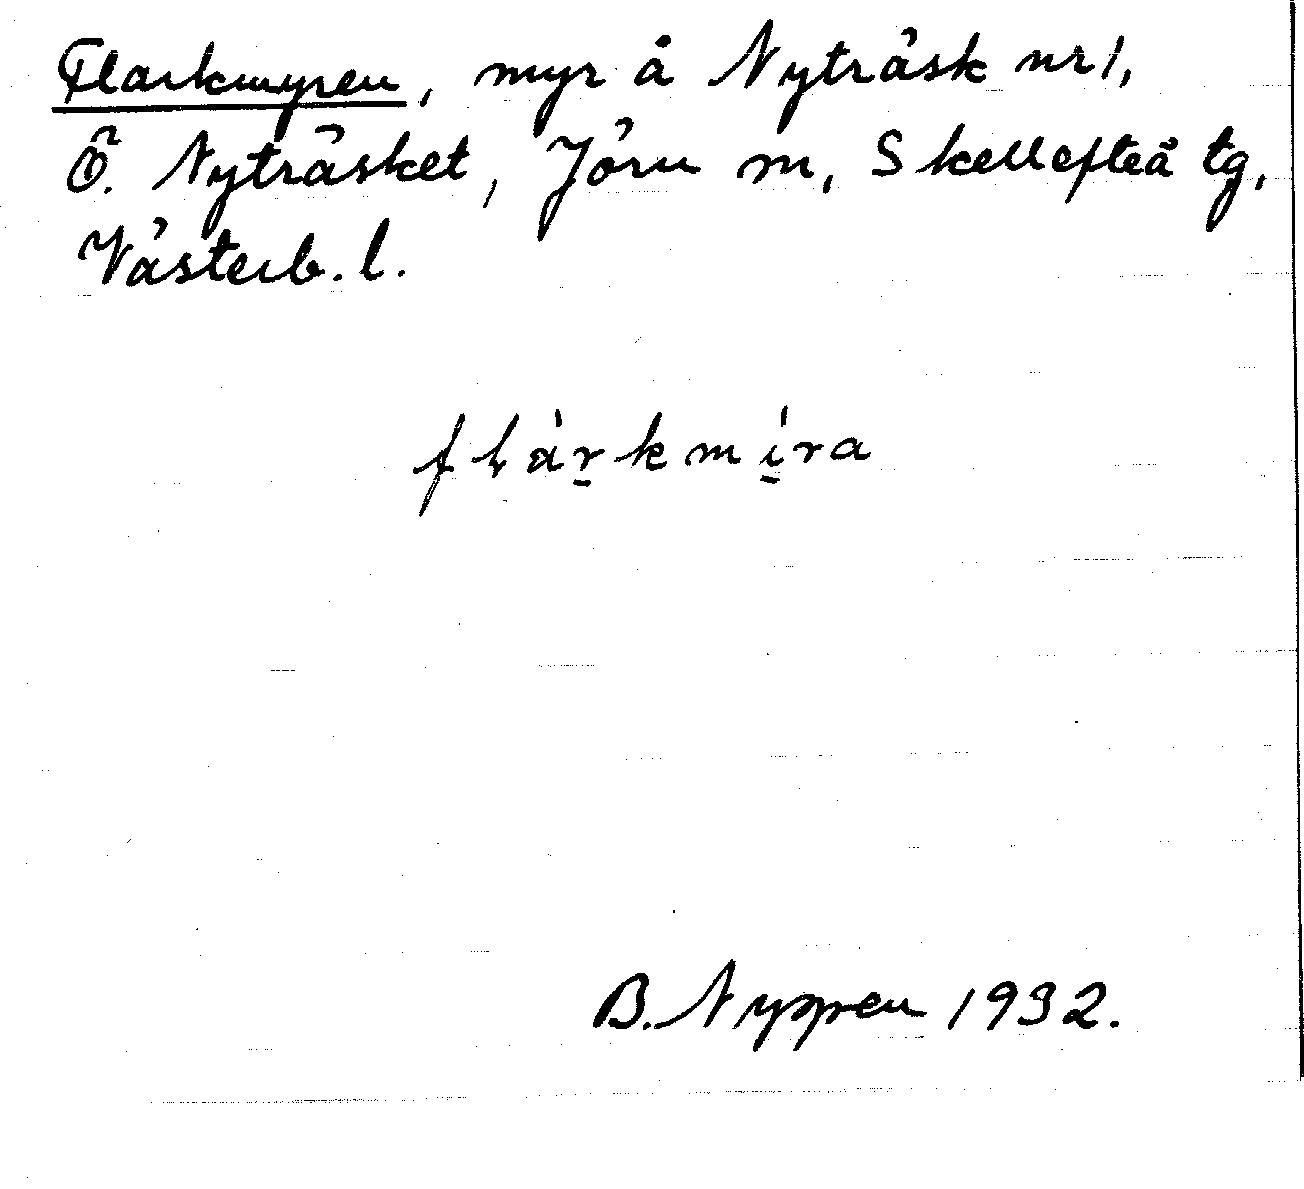 Flarkmyren, myr å Nyträsk nr 1,
Ö. Nyträsket, Jörn m, Skellefteå tg,
Västerb. l.
flàrkmíra
B. Nygren 1932.